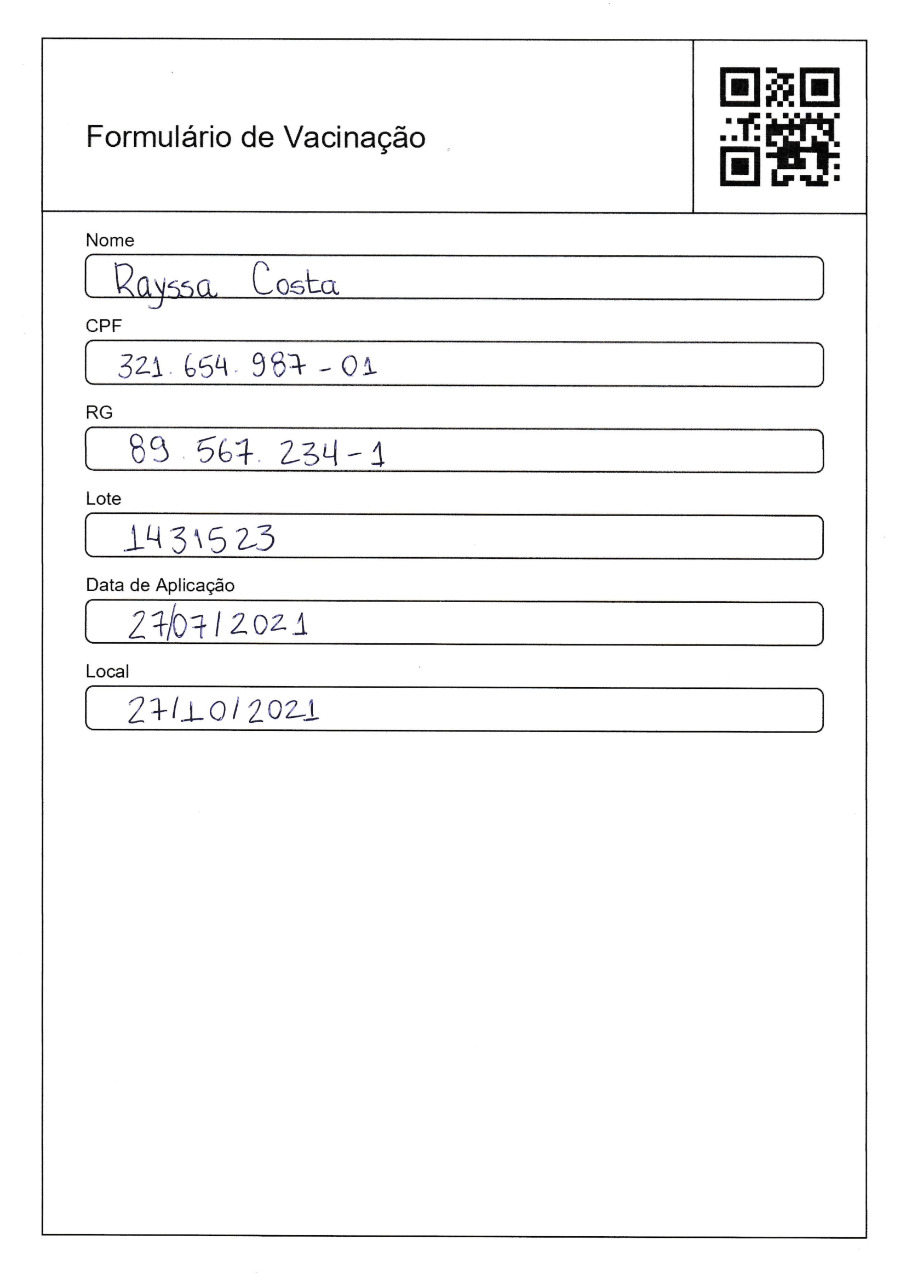 Formulário de Vacinação
Nome
Rayssa Costa
CPF
321.654.987-01
RG
89.567.234-1
Lote
1431523
Data de Aplicação
27/07/2021
Local
27/10/2021